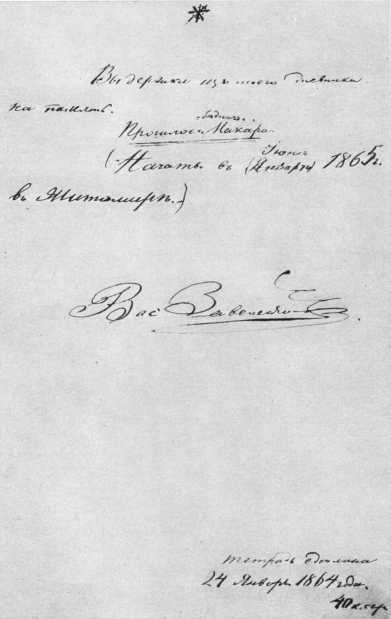 Выдержки изъ моего дневника
на память.
бѣднаго
Прошлое Макара.
Іюнѣ
(Начать въ (Январѣ) 1865 г.
въ Житомирѣ.)
Вас
тетрадь сдѣлана
24 Январь 1864 года.
40 к. сер.